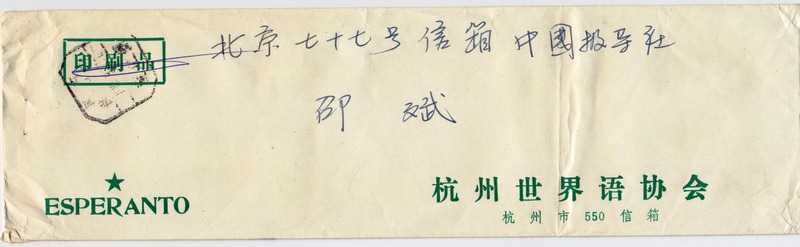 北京七十七号信箱中國报导社
印刷品
邵斌
ESPERANTO
杭州世界语协会
杭州市550信箱